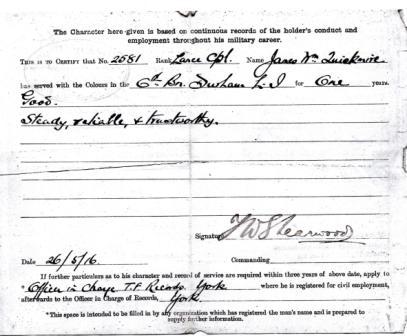 The Character here given is based on continuous records of the holder's conduct and
employment throughout his military career.
THIS IS TO CERTIFY that No. 2581 Rank Lance Cpl. Name James Wm
has served with the Colours in the 6th Bn. Durham L. I for One years.
Good.
Steady, reliable, & trustworthy.
Signature
Date 26/5/16. Commanding
If further particulars as to his character and record of service are required within three years of above date, apply to
* Officer in Charge T.F Records, York where he is registered for civil employment,
afterwards to the Officer in Charge of Records, York.
*This space is intended to be filled in by any organization which has registered the man's name and is prepared to
supply further information.